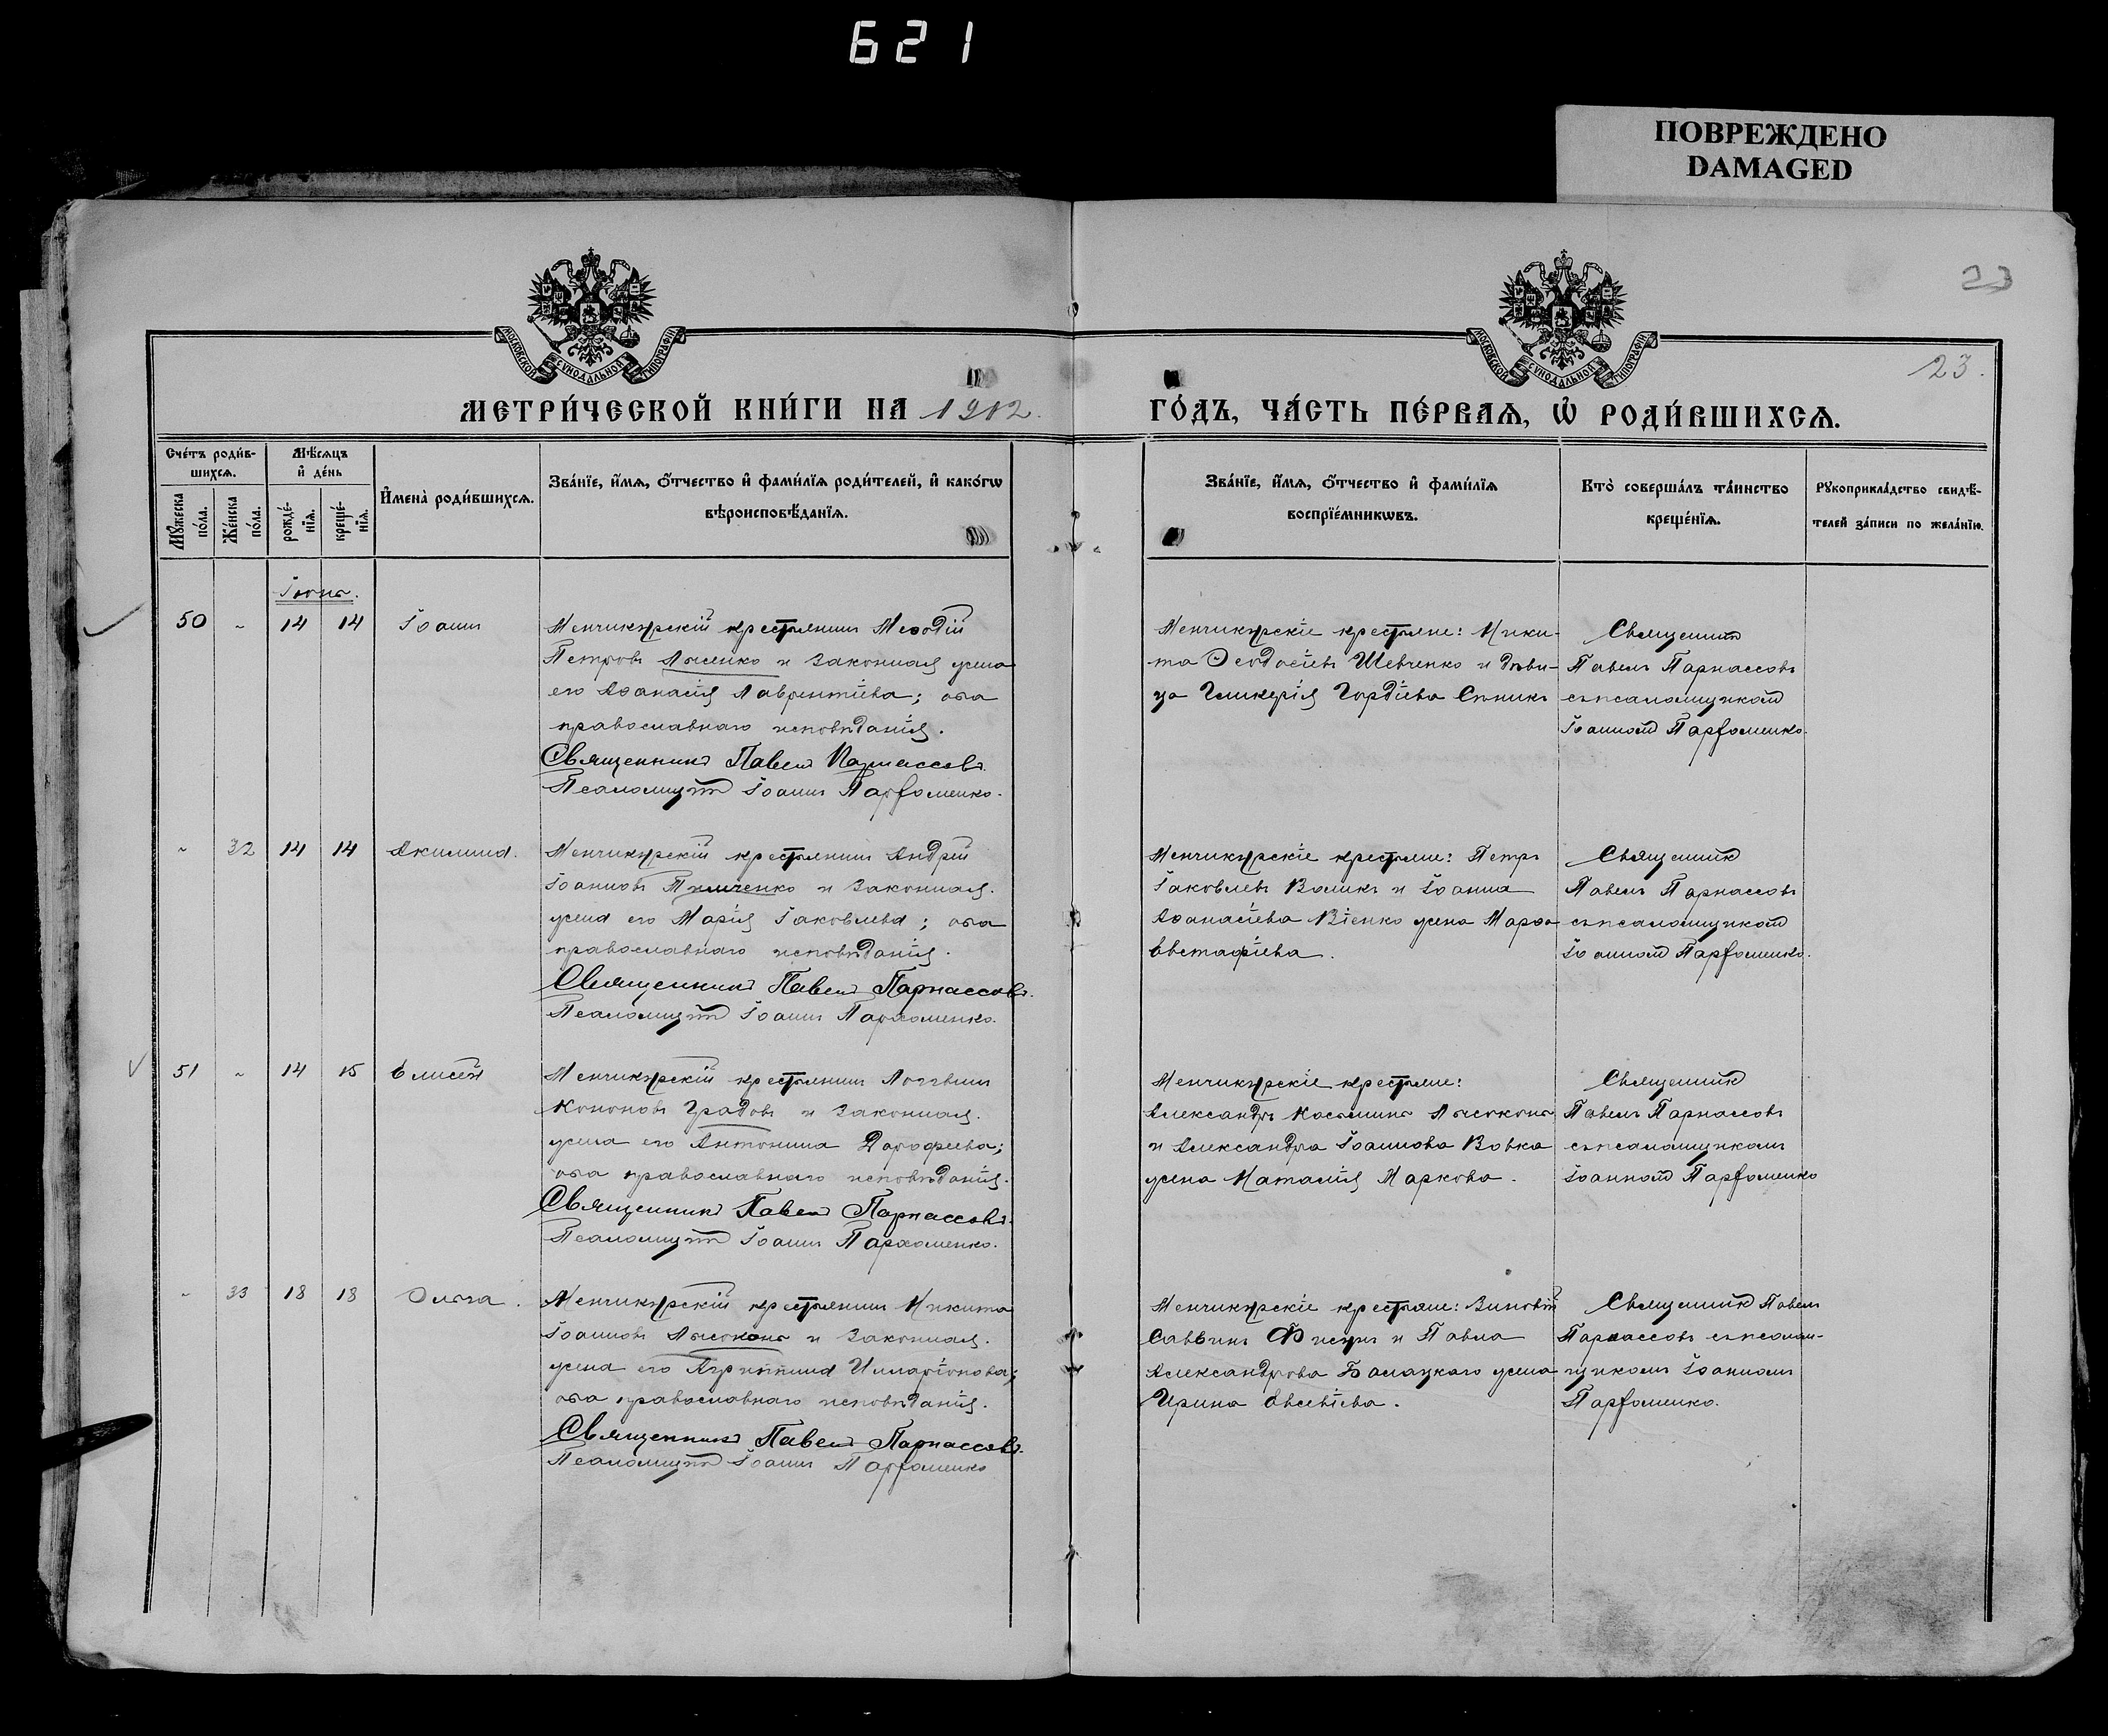 621
ПОВРЕЖДЕНО
DAMAGED
23
23.
МОСКОВСКОЙ СѴНОДАЛЬНОЙ ТИПОГРАФІИ
МОСКОВСКОЙ СѴНОДАЛЬНОЙ ТИПОГРАФІИ
МЕТРИ́ЧЕСКОЙ КНИ́ГИ НА 1912.
ГО́ДЪ, ЧА́СТЬ ПЕ́РВАЯ, Ѡ҆ РОДИ́ВШИХСЯ.
Сче́тъ роди́в-
шихся.
Мꙋ́жеска по́ла.
Же́нска по́ла.
Мѣ́сяцъ и҆ де́нь
рожде́-нїя.
креще́-нїя.
И҆мена̀ роди́вшихся.
Зва́нїе, и҆́мя, ѻ҆́тчество и҆ фами́лїя роди́телей, и҆ како́гѡ
вѣроисповѣ́данїя.
Зва́нїе, и҆́мя, ѻ҆́тчество и҆ фами́лїя
воспрїе́мникѡвъ.
Кто̀ соверша́лъ та́инство
креще́нїя.
Рꙋкоприкла́дство свидѣ́-
телей за́писи по жела́нїю.
Іюнь.
50 " 14 14 Іоаннъ
Менчикурскій крестьянинъ Меѳодій
Петровъ Лысенко и законная жена
его Аѳанасія Лаврентіева; оба
православнаго исповѣданія.
Священникъ Павелъ Парнассовъ.
Псаломщикъ Іоаннъ Парѳоменко.
Менчикурскіе крестьяне: Ники-
та Ѳеодосіевъ Шевченко и дѣви-
ца Гликерія Гордіева Спникъ
Священникъ
Павелъ Парнассовъ
съ псаломщикомъ
Іоанномъ Парѳоменко.
" 32 14 14 Акилина.
Менчикурскій крестьянинъ Андрей
Іоанновъ Пилипченко и законная
жена его Марія Іаковлева; оба
православнаго исповѣданія.
Священникъ Павелъ Парнассовъ.
Псаломщикъ Іоаннъ Пархоменко.
Менчикурскіе крестьяне: Петръ
Іаковлевъ Воликъ и Іоанна
Аѳанасіева Віенко жена Марѳа
Евстафіева.
Священникъ
Павелъ Парнассовъ
съ псаломщикомъ
Іоанномъ Парѳоменко.
51 " 14 15 Елисей
Менчикурскій крестьянинъ Логгвинъ
Кононовъ Градовъ и законная
жена его Антонина Дорофеева;
оба православнаго исповѣданія.
Священникъ Павелъ Парнассовъ.
Псаломщикъ Іоаннъ Пархоменко.
Менчикурскіе крестьяне:
Александръ Косьминъ Лысоконь
и Александра Іоаннова Вовка
жена Наталія Маркова.
Священникъ
Павелъ Парнассовъ
съ псаломщикомъ
Іоанномъ Парѳоменко
" 33 18 18 Ольга.
Менчикурскій крестьянинъ Никита
Іоанновъ Лысоконь и законная
жена его Агриппина Илларіонова;
оба православнаго исповѣданія.
Священникъ Павелъ Парнассовъ.
Псаломщикъ Іоаннъ Парѳоменко
Менчикурскіе крестьяне: Зиновій
Саввинъ Фисунъ и Павла
Александрова Балацкаго жена
Ирина Евсевіева.
Священникъ Павелъ
Парнассовъ съ псалом-
щикомъ Іоанномъ
Парѳоменко.